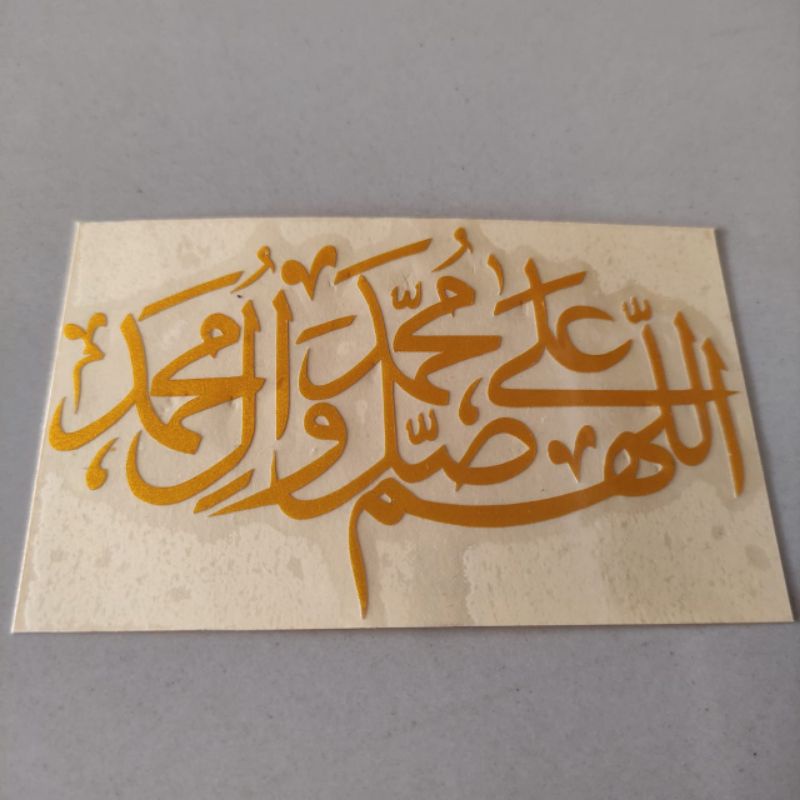 اللّهم صلّ على محمّد وال محمد